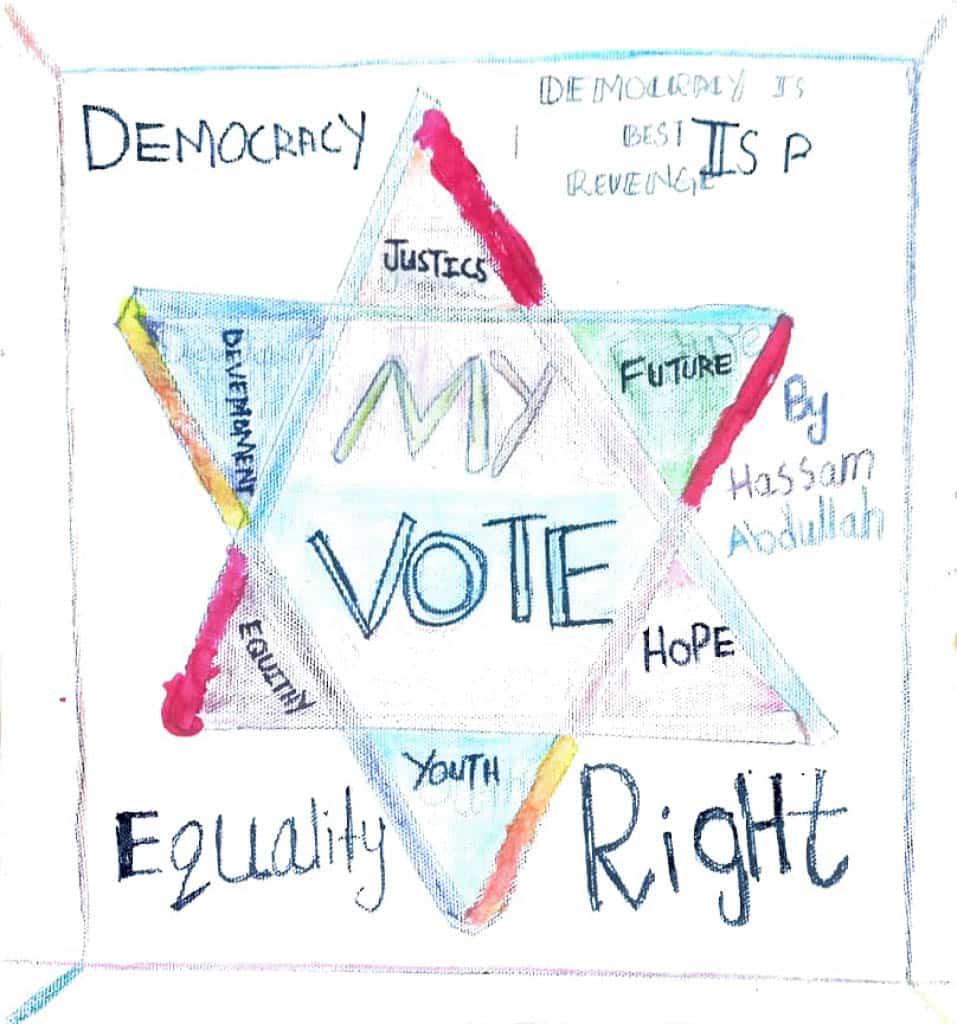 DEMOCRACY
DEMOCRACY IS
BEST
REVENGE
IS P
JUSTICS
DEVEMOMENT
FUTURE
MY
By
Hassam
Abdullah
VOTE
EQUITHY
HOPE
YOUTH
Equality
RigHt